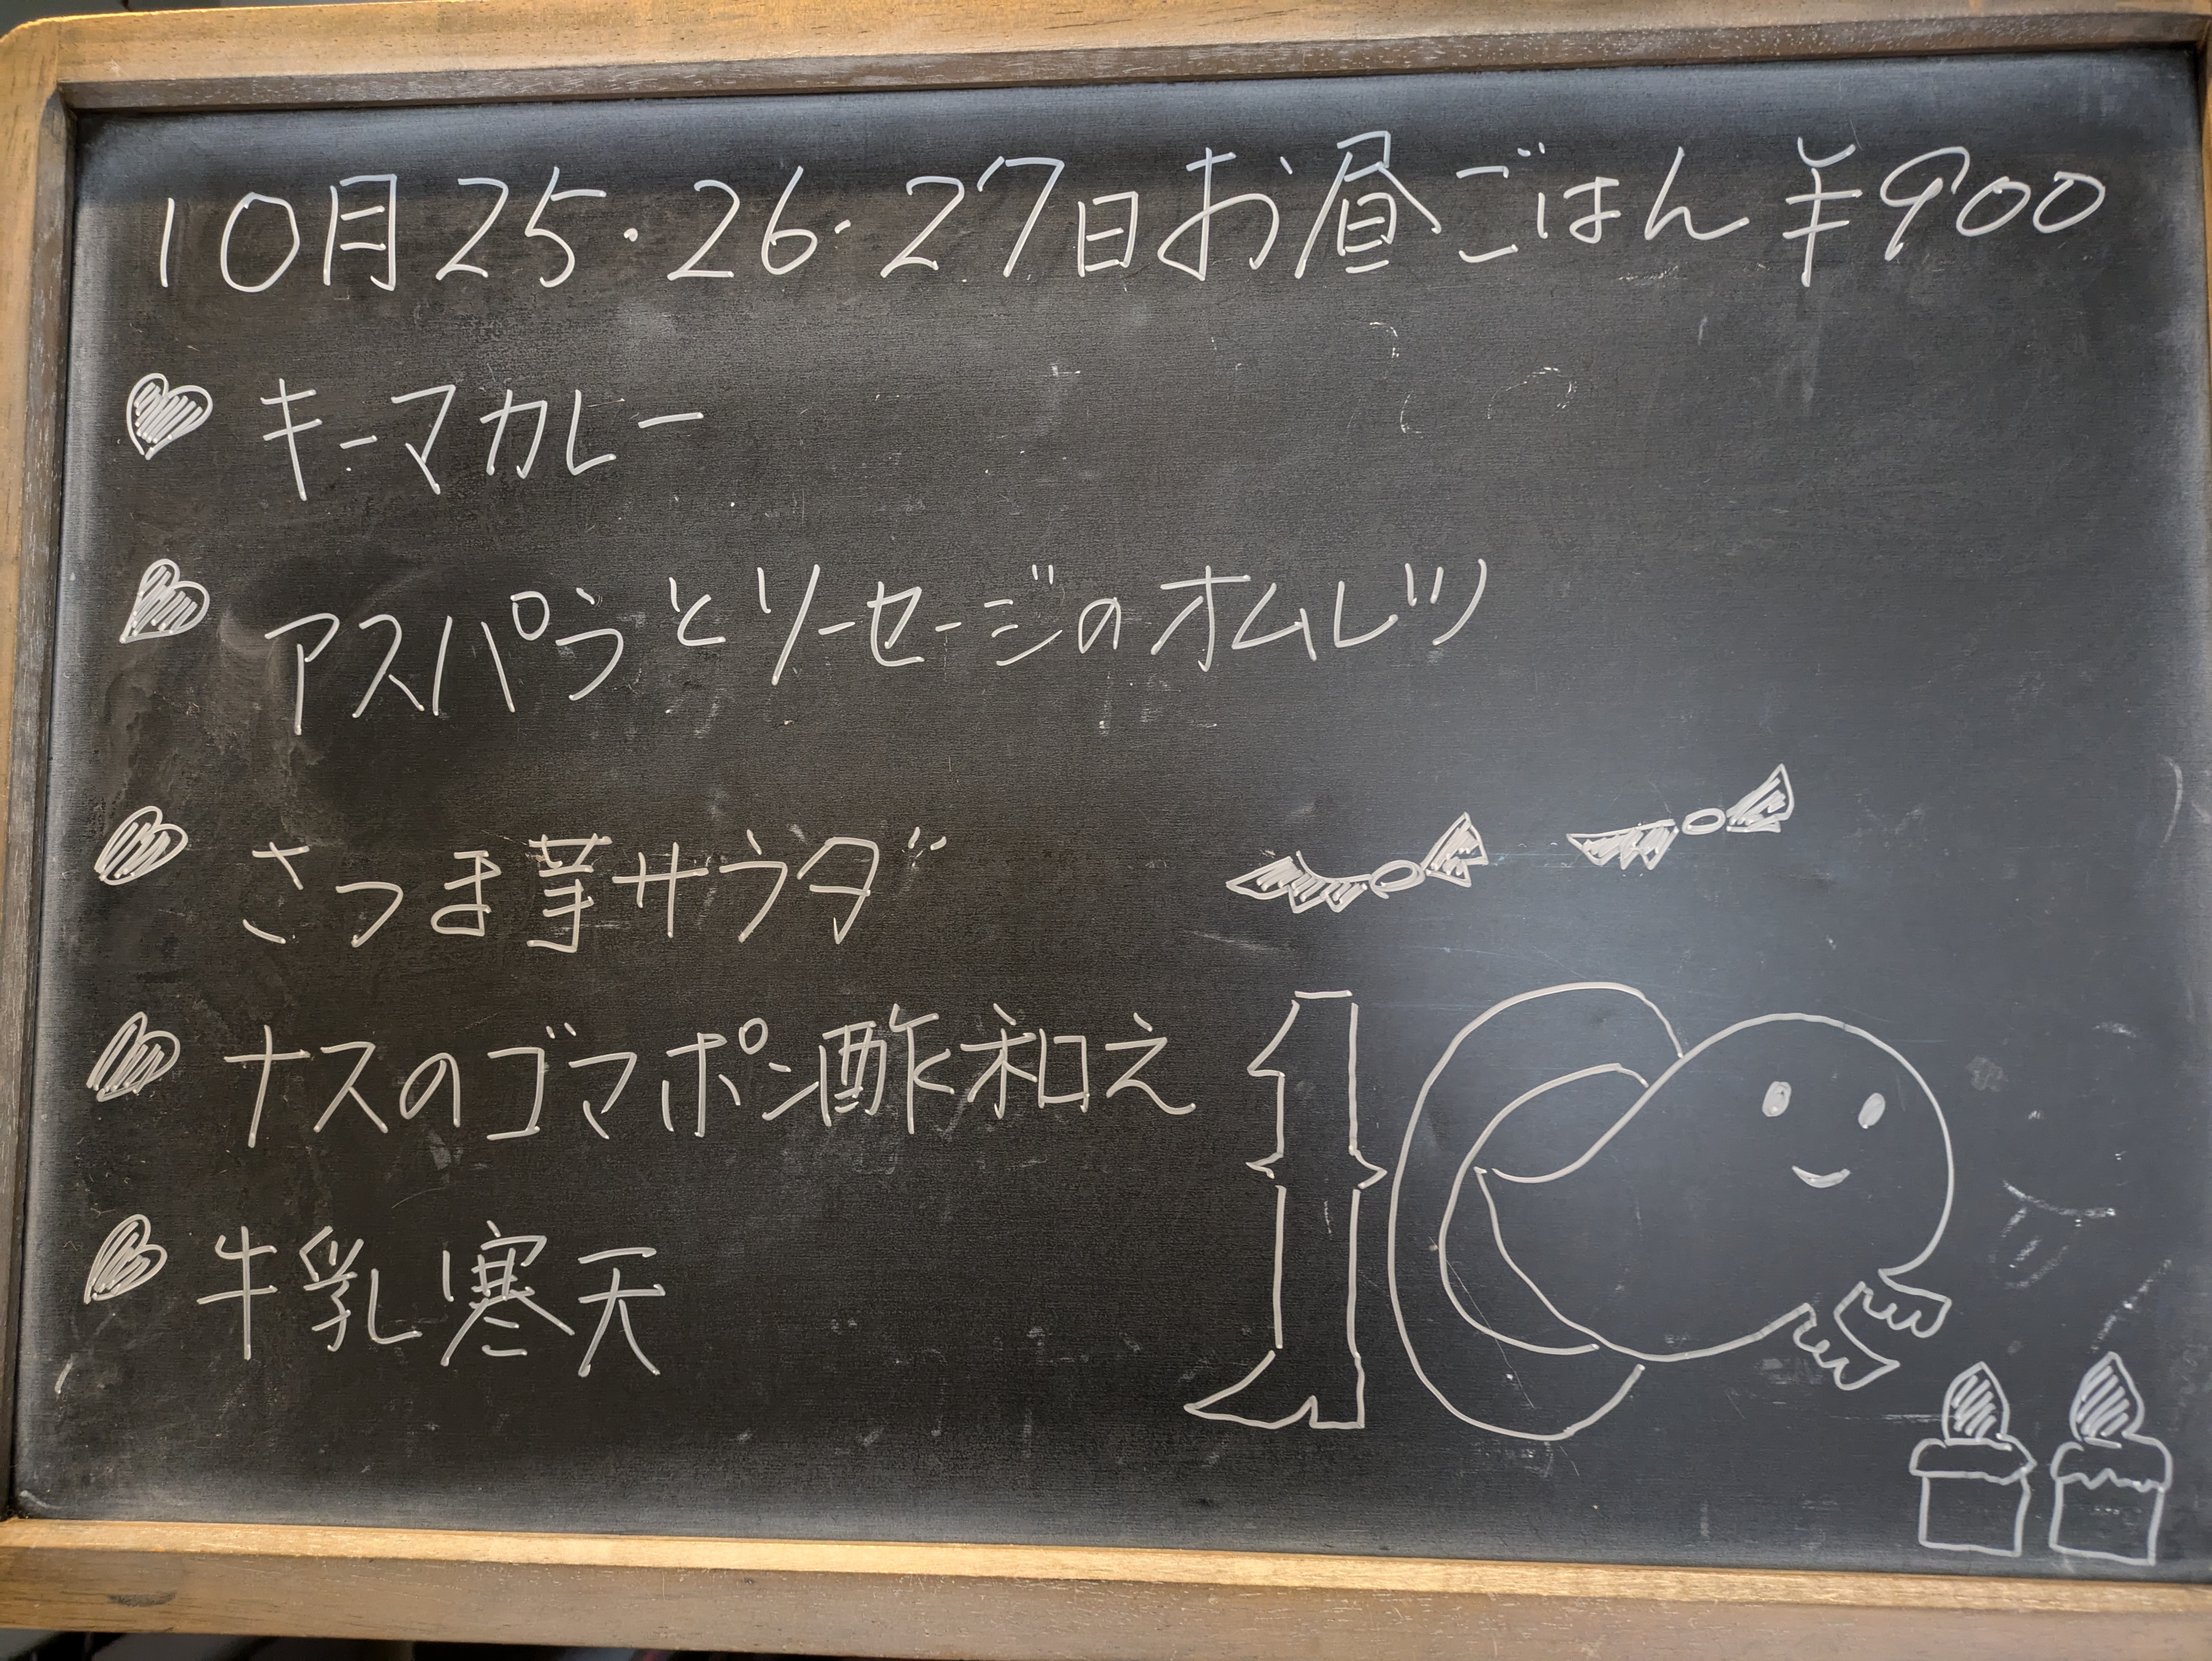 10月25・26・27日お昼ごはん ¥900
キーマカレー
アスパラとソーセージのオムレツ
さつま芋サラダ
ナスのゴマポン酢和え
牛乳寒天